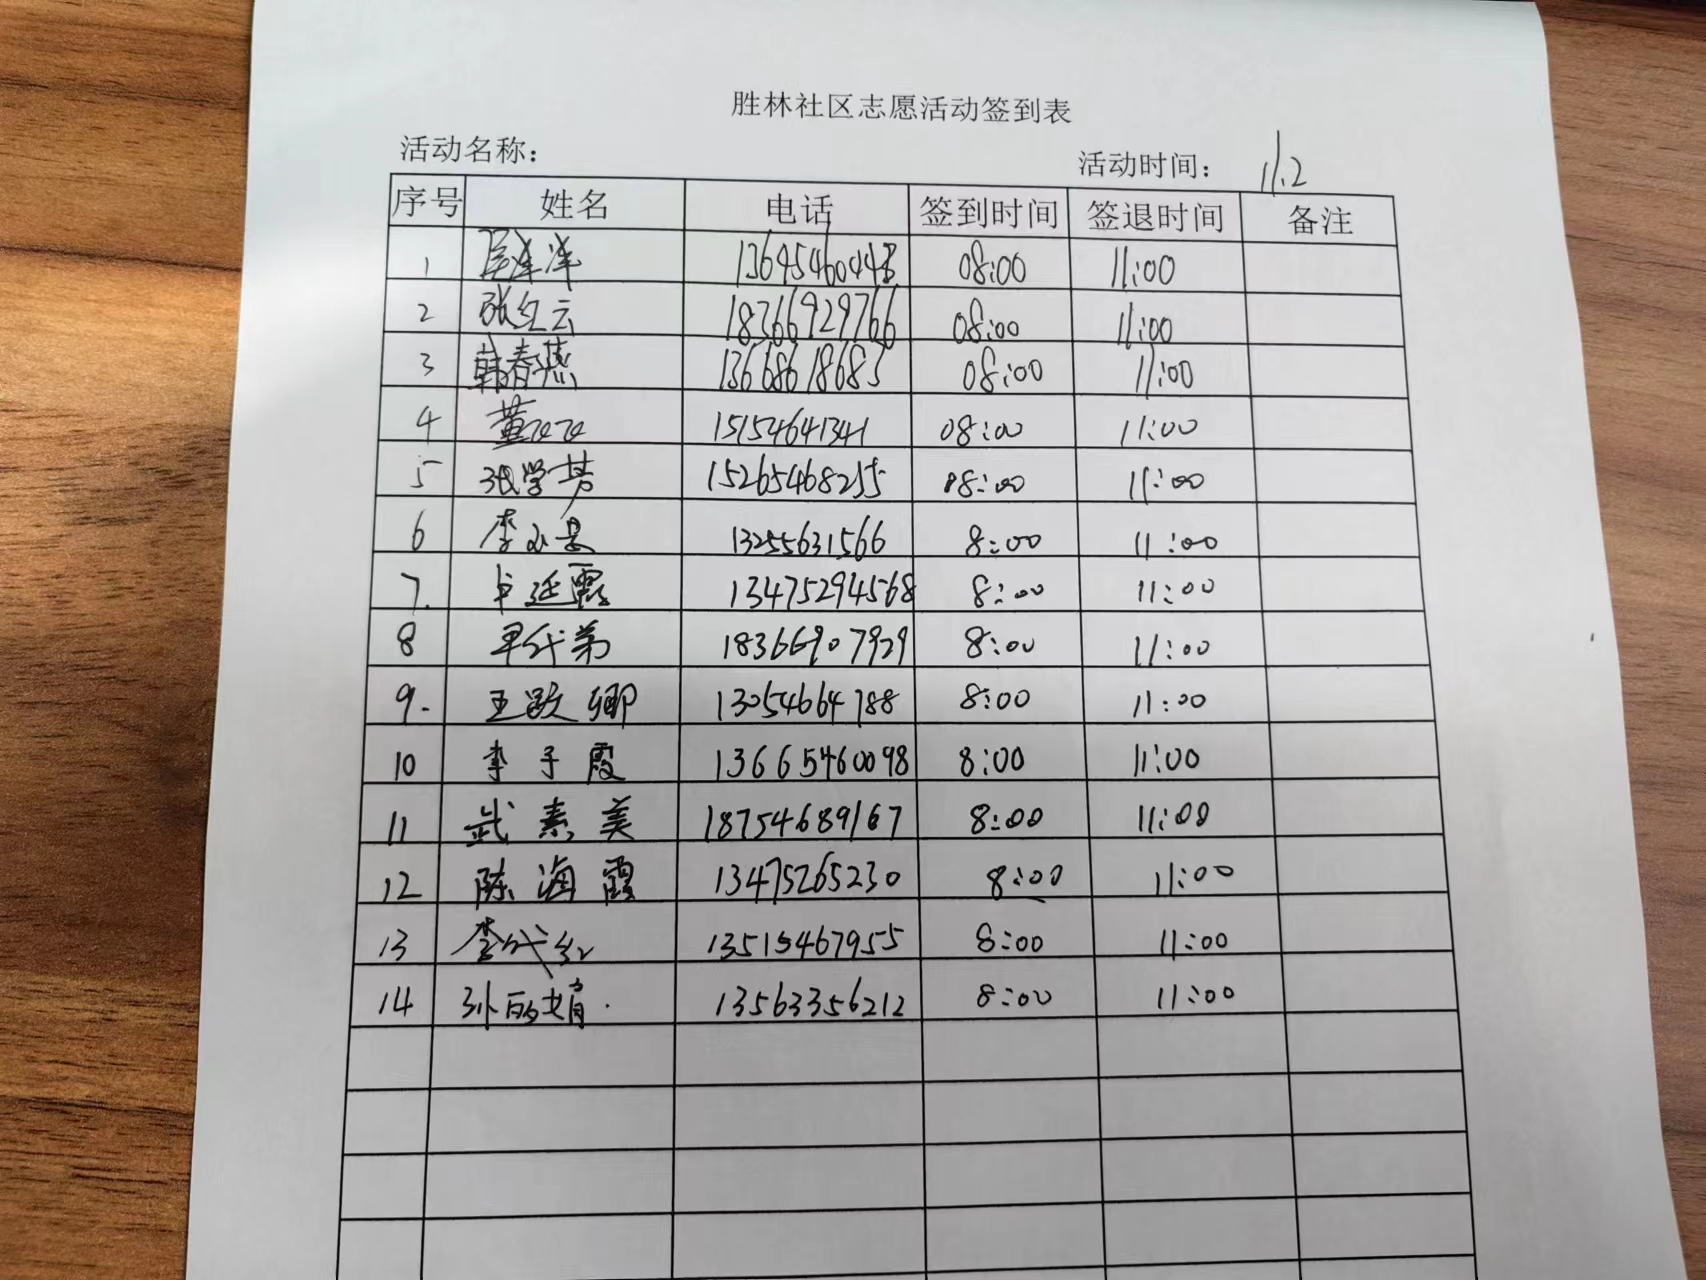 胜林社区志愿活动签到表
活动名称： 活动时间： 11.2
序号 姓名 电话 签到时间 签退时间 备注
1 泽泽 13645460448 08:00 11:00
2 张红云 18366929766 08:00 11:00
3 韩春燕 13668618685 08:00 11:00
4 董 15154641341 08:00 11:00
5 张学芳 15265468255 08:00 11:00
6 李 13255631566 8:00 11:00
7. 延霞 13475294568 8:00 11:00
8 代弟 18366907929 8:00 11:00
9. 王跃卿 13054664788 8:00 11:00
10 李子霞 13665460098 8:00 11:00
11 武素美 18754689167 8:00 11:00
12 陈海霞 13475265230 8:00 11:00
13 李代红 13515467955 8:00 11:00
14 孙丽娟. 13563356212 8:00 11:00